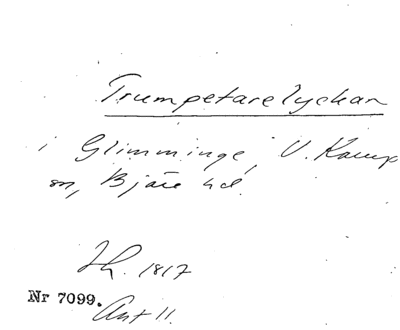 Trumpetarelyckan
i Glimminge, V. Karup
sn, Bjäre hd.
1817
Nr 7099.
Ant 11.